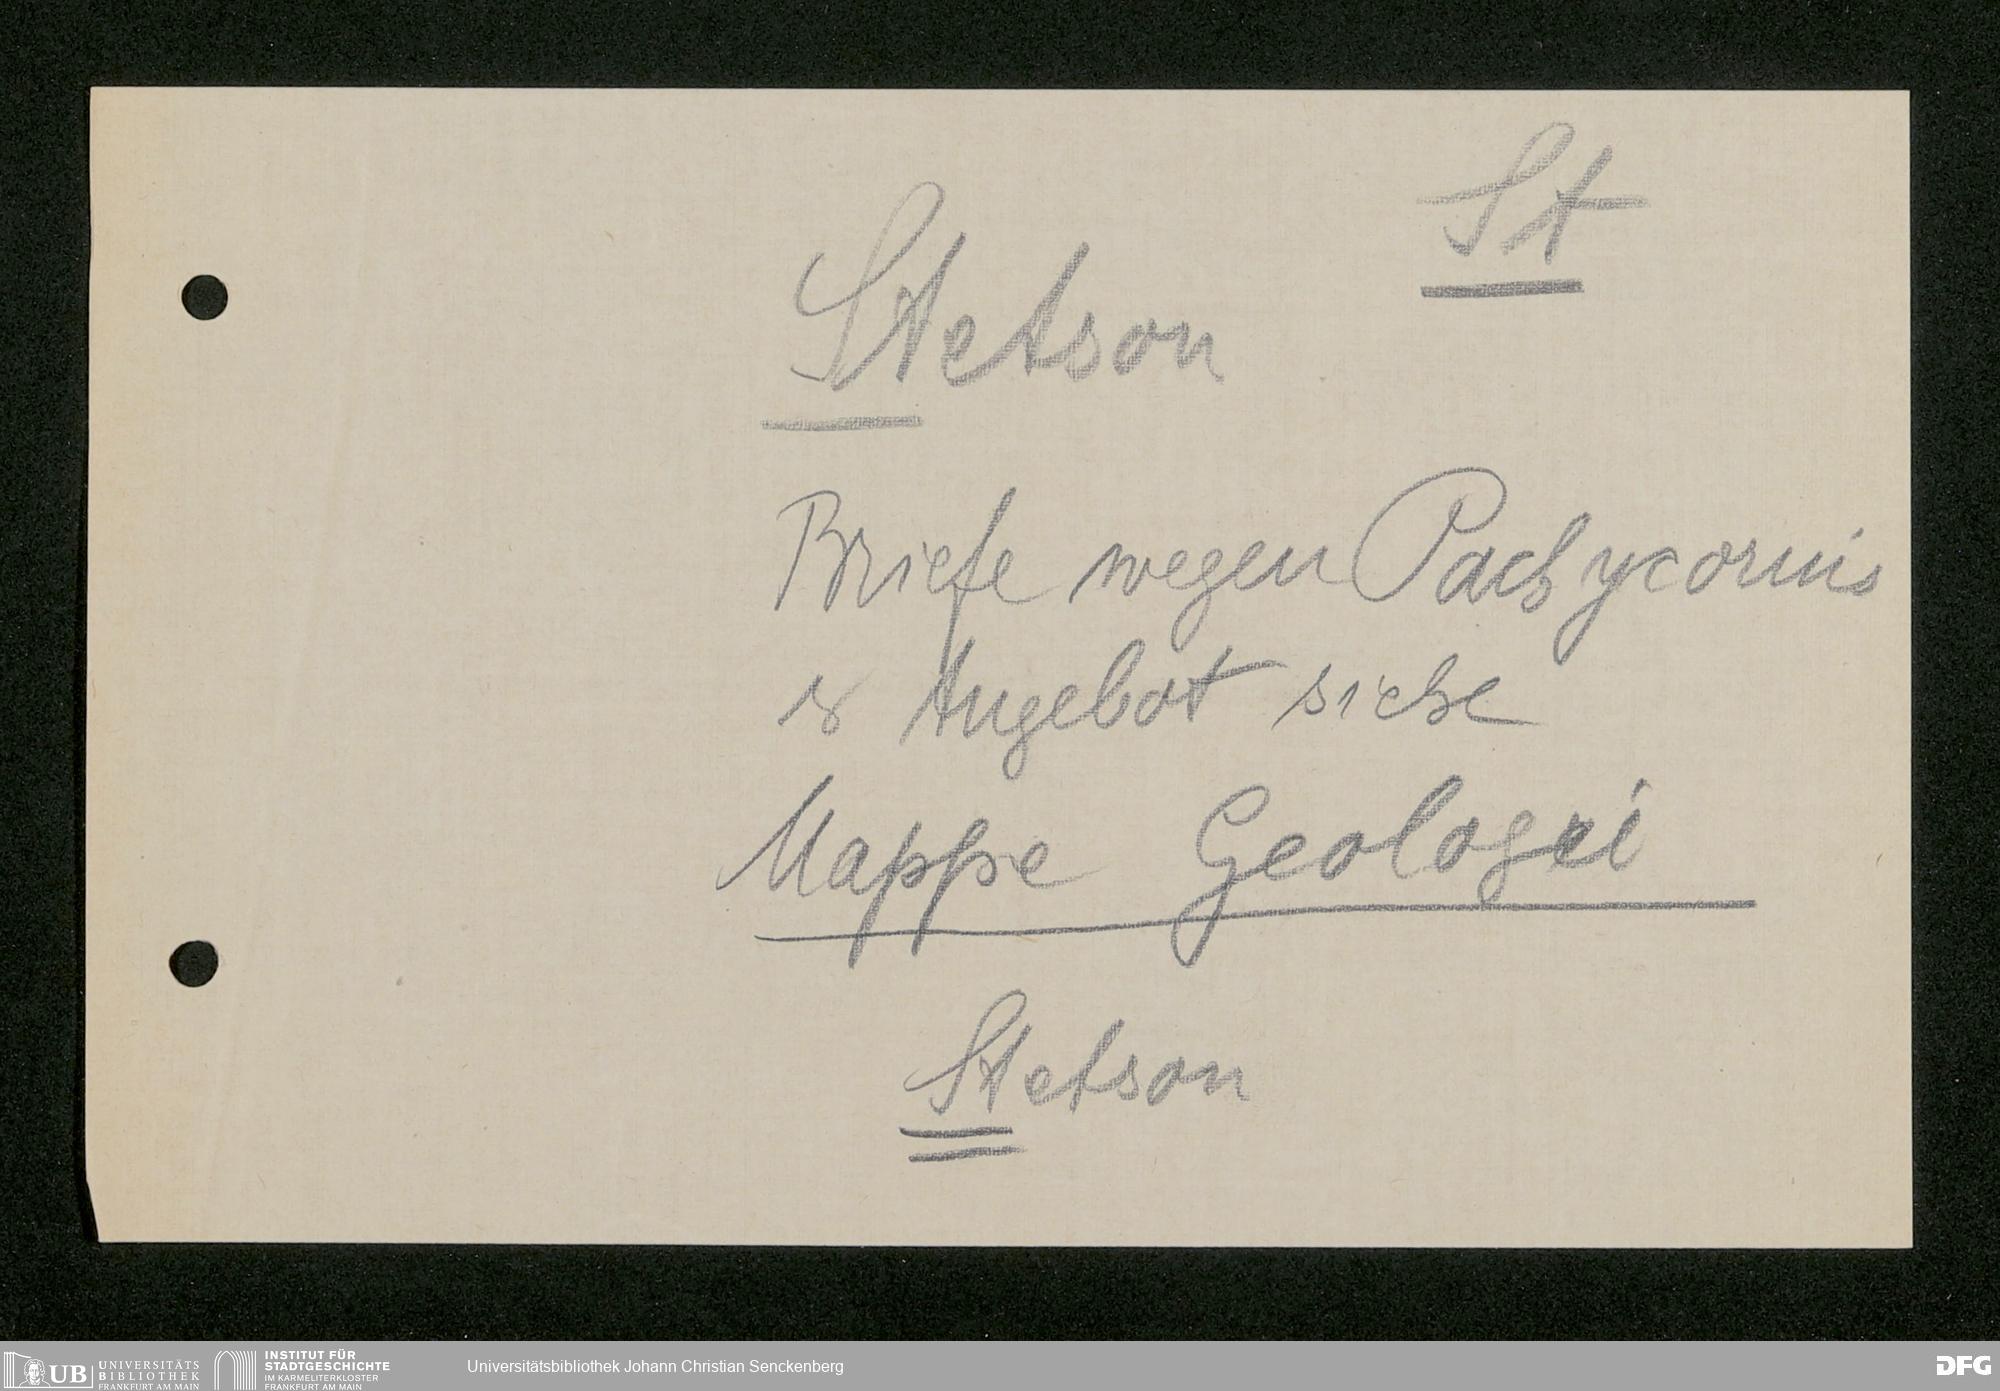 St
Stetson
Briefe wegen Pachycormis
& Angebot siehe
Mappe Geologei
Stetson
UB UNIVERSITÄTS
BIBLIOTHEK
FRANKFURT AM MAIN
INSTITUT FÜR
STADTGESCHICHTE
IM KARMELITERKLOSTER
FRANKFURT AM MAIN
Universitätsbibliothek Johann Christian Senckenberg
DFG